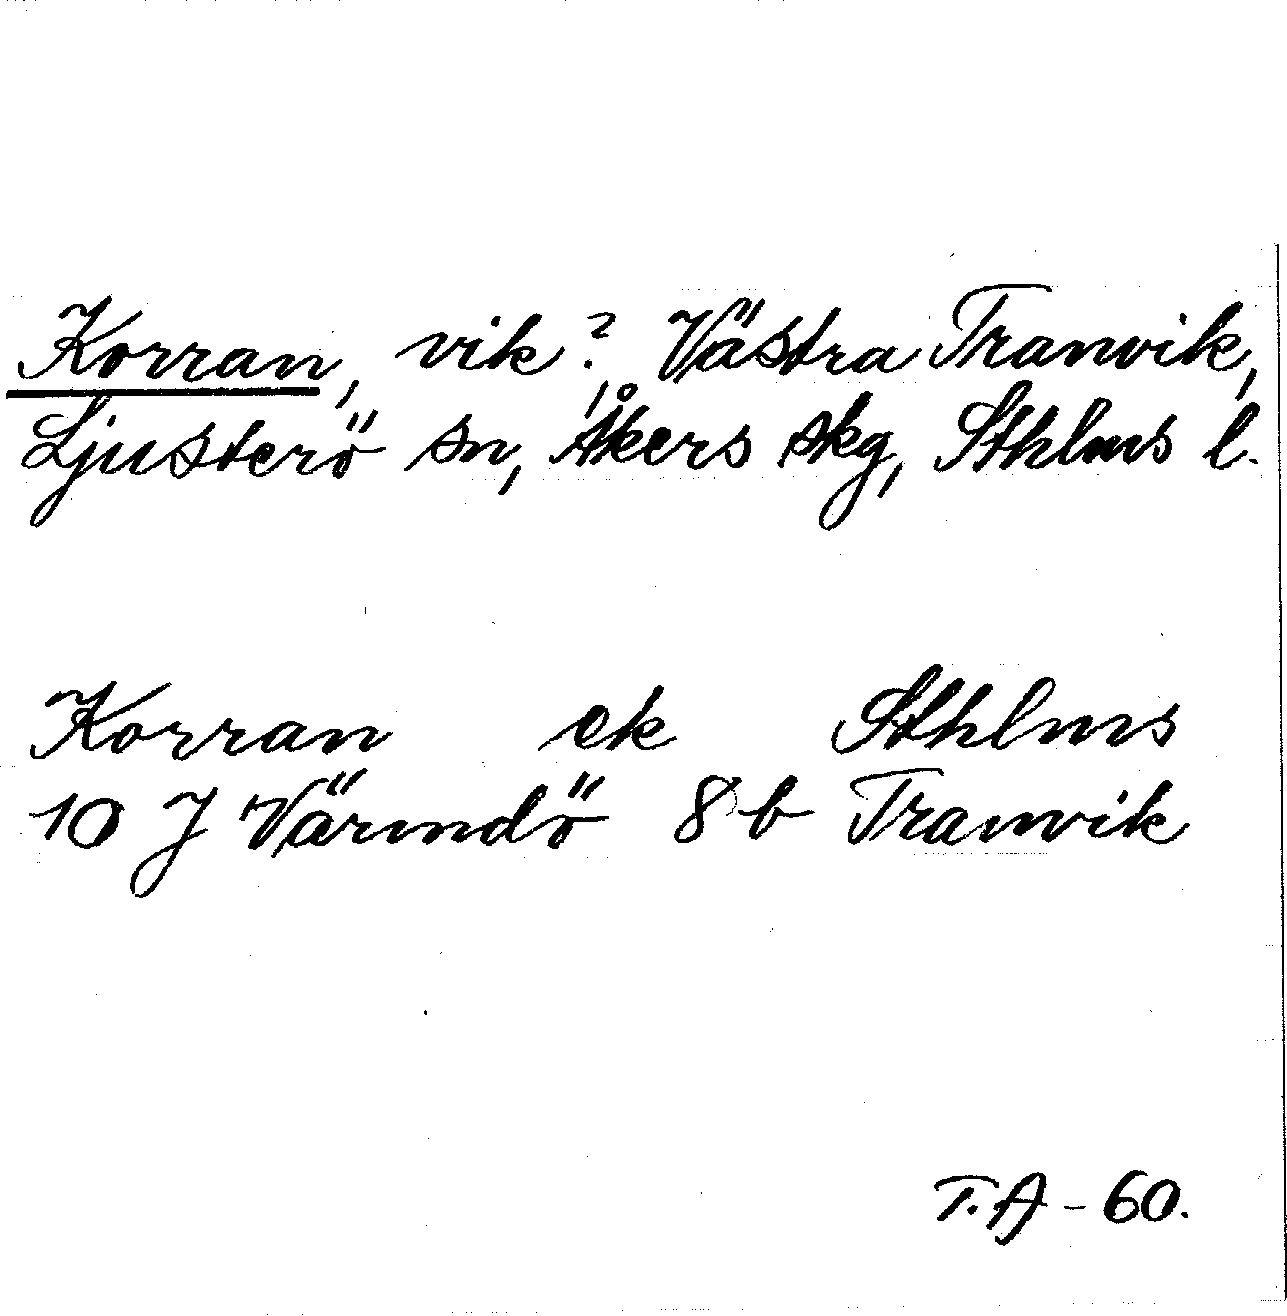 Korran, vik? Västra Tranvik,
Ljusterö sn, Åkers skg, Sthlms l.
Korran ek Sthlms
10 J Värmdö 8 b Tranvik
T.A - 60.